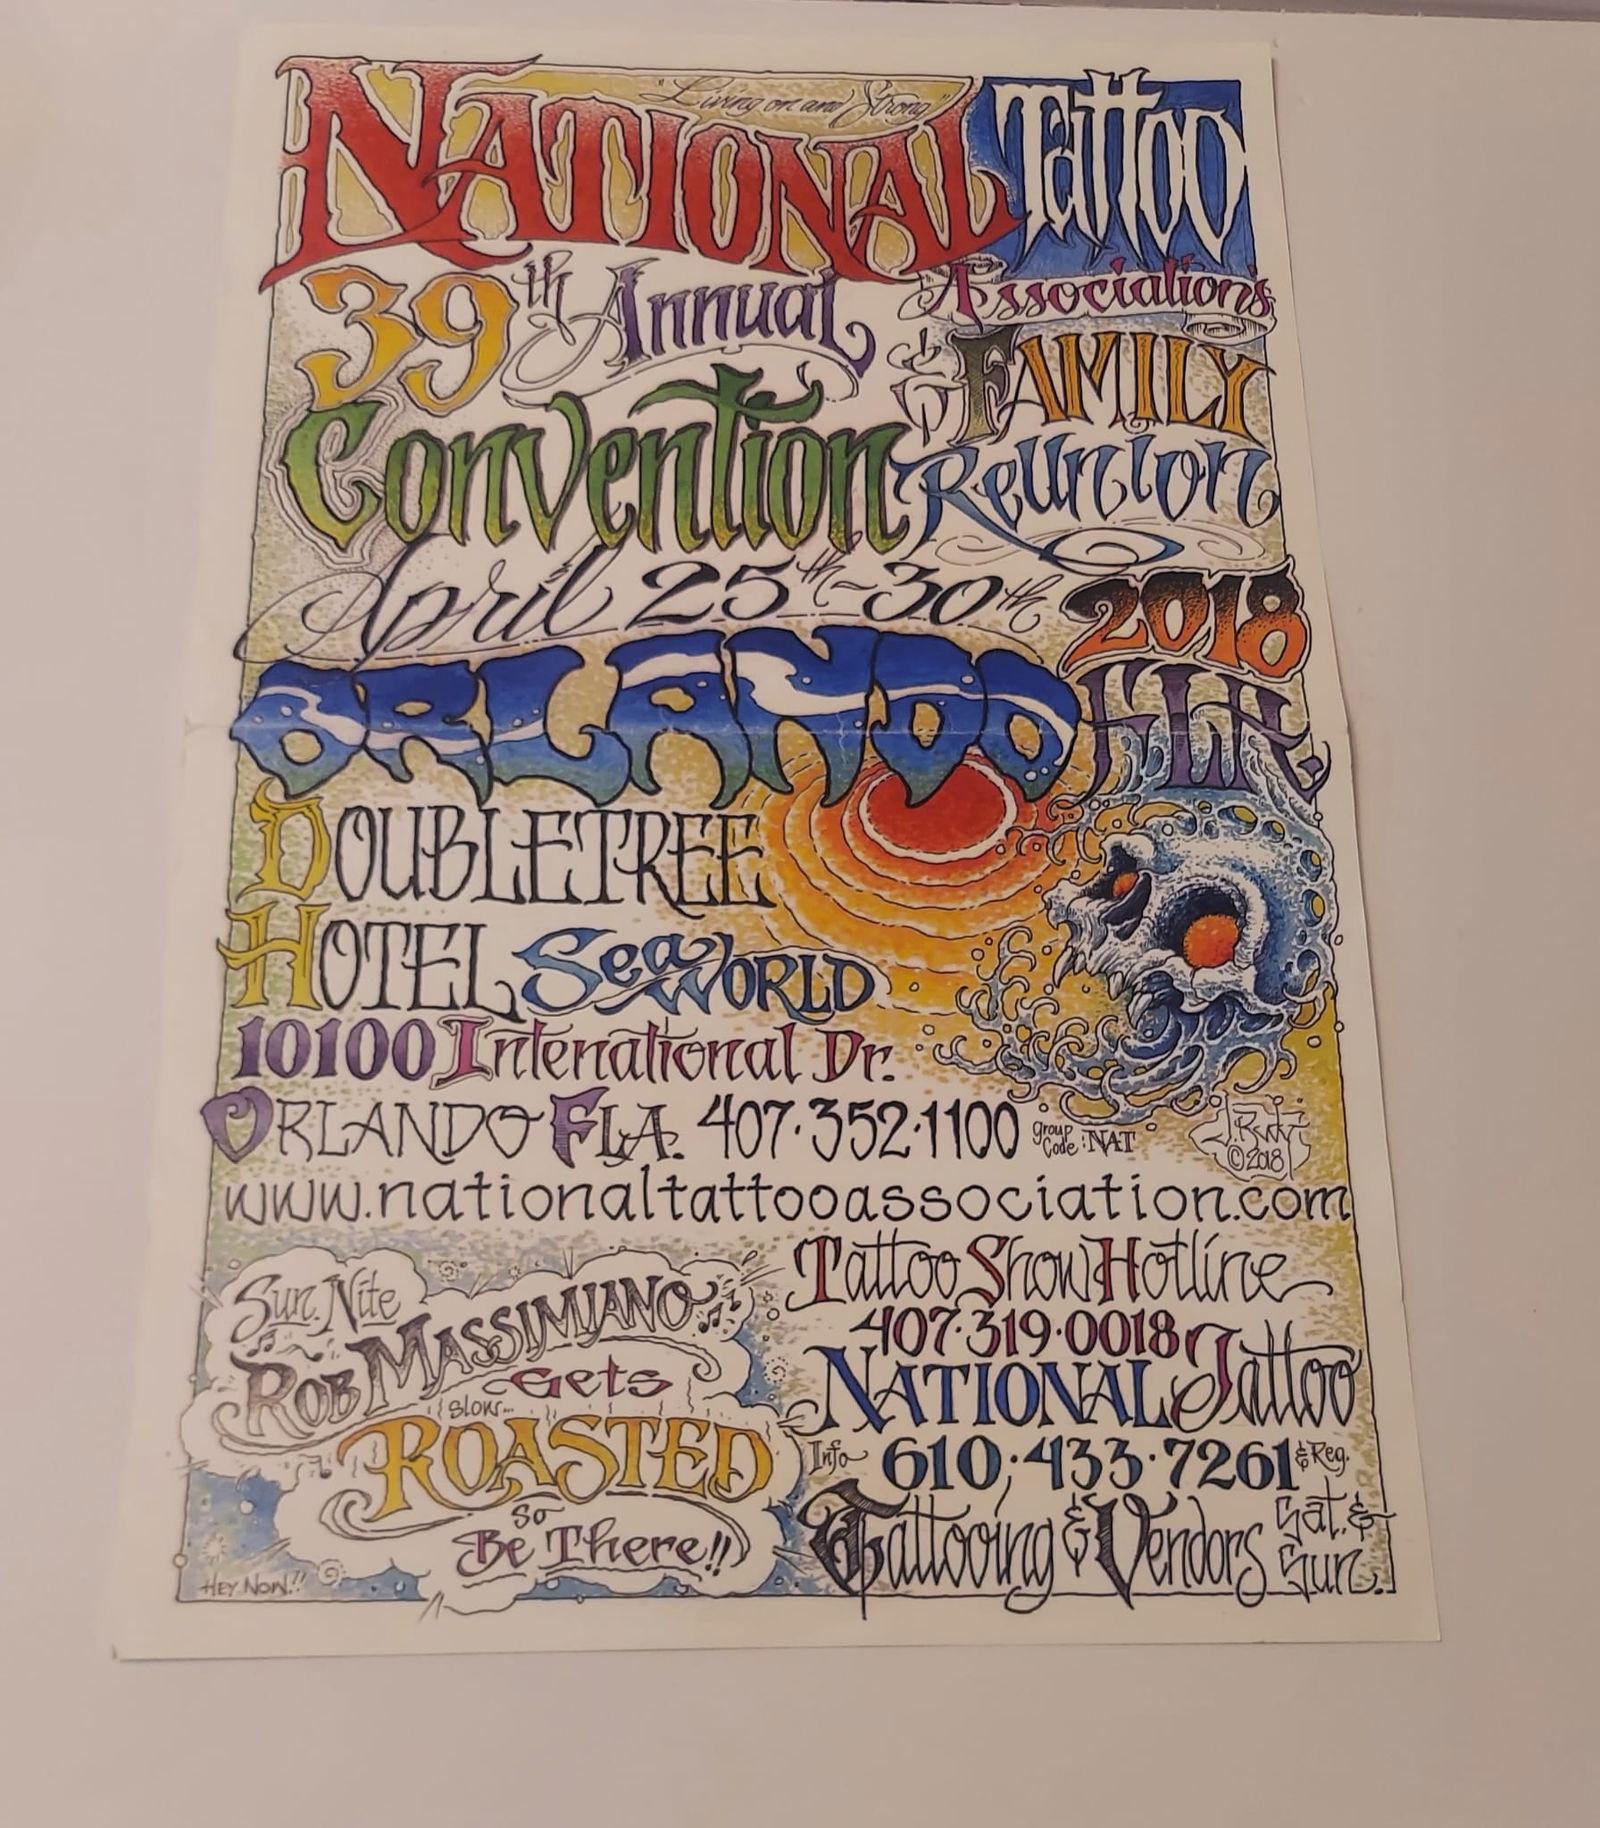 "Living on and Strong"
NATIONAL Tattoo
Association's
39th Annual
& FAMILY
Convention Reunion
April 25th-30th 2018
ORLANDO FLA.
DOUBLETREE
HOTEL SeaWORLD
10100 Intenational Dr.
ORLANDO FLA. 407·352·1100 group Code: NAT
©2018
www.nationaltattooassociation.com
Sun. Nite
ROB MASSIMIANO
Gets
slow...
ROASTED
So
Be There!!
HEY NOW!!
Tattoo Show Hotline
407·319·0018
NATIONAL Tattoo
Info 610·433·7261 & Reg.
Tattooing & Vendors Sat. & Sun.